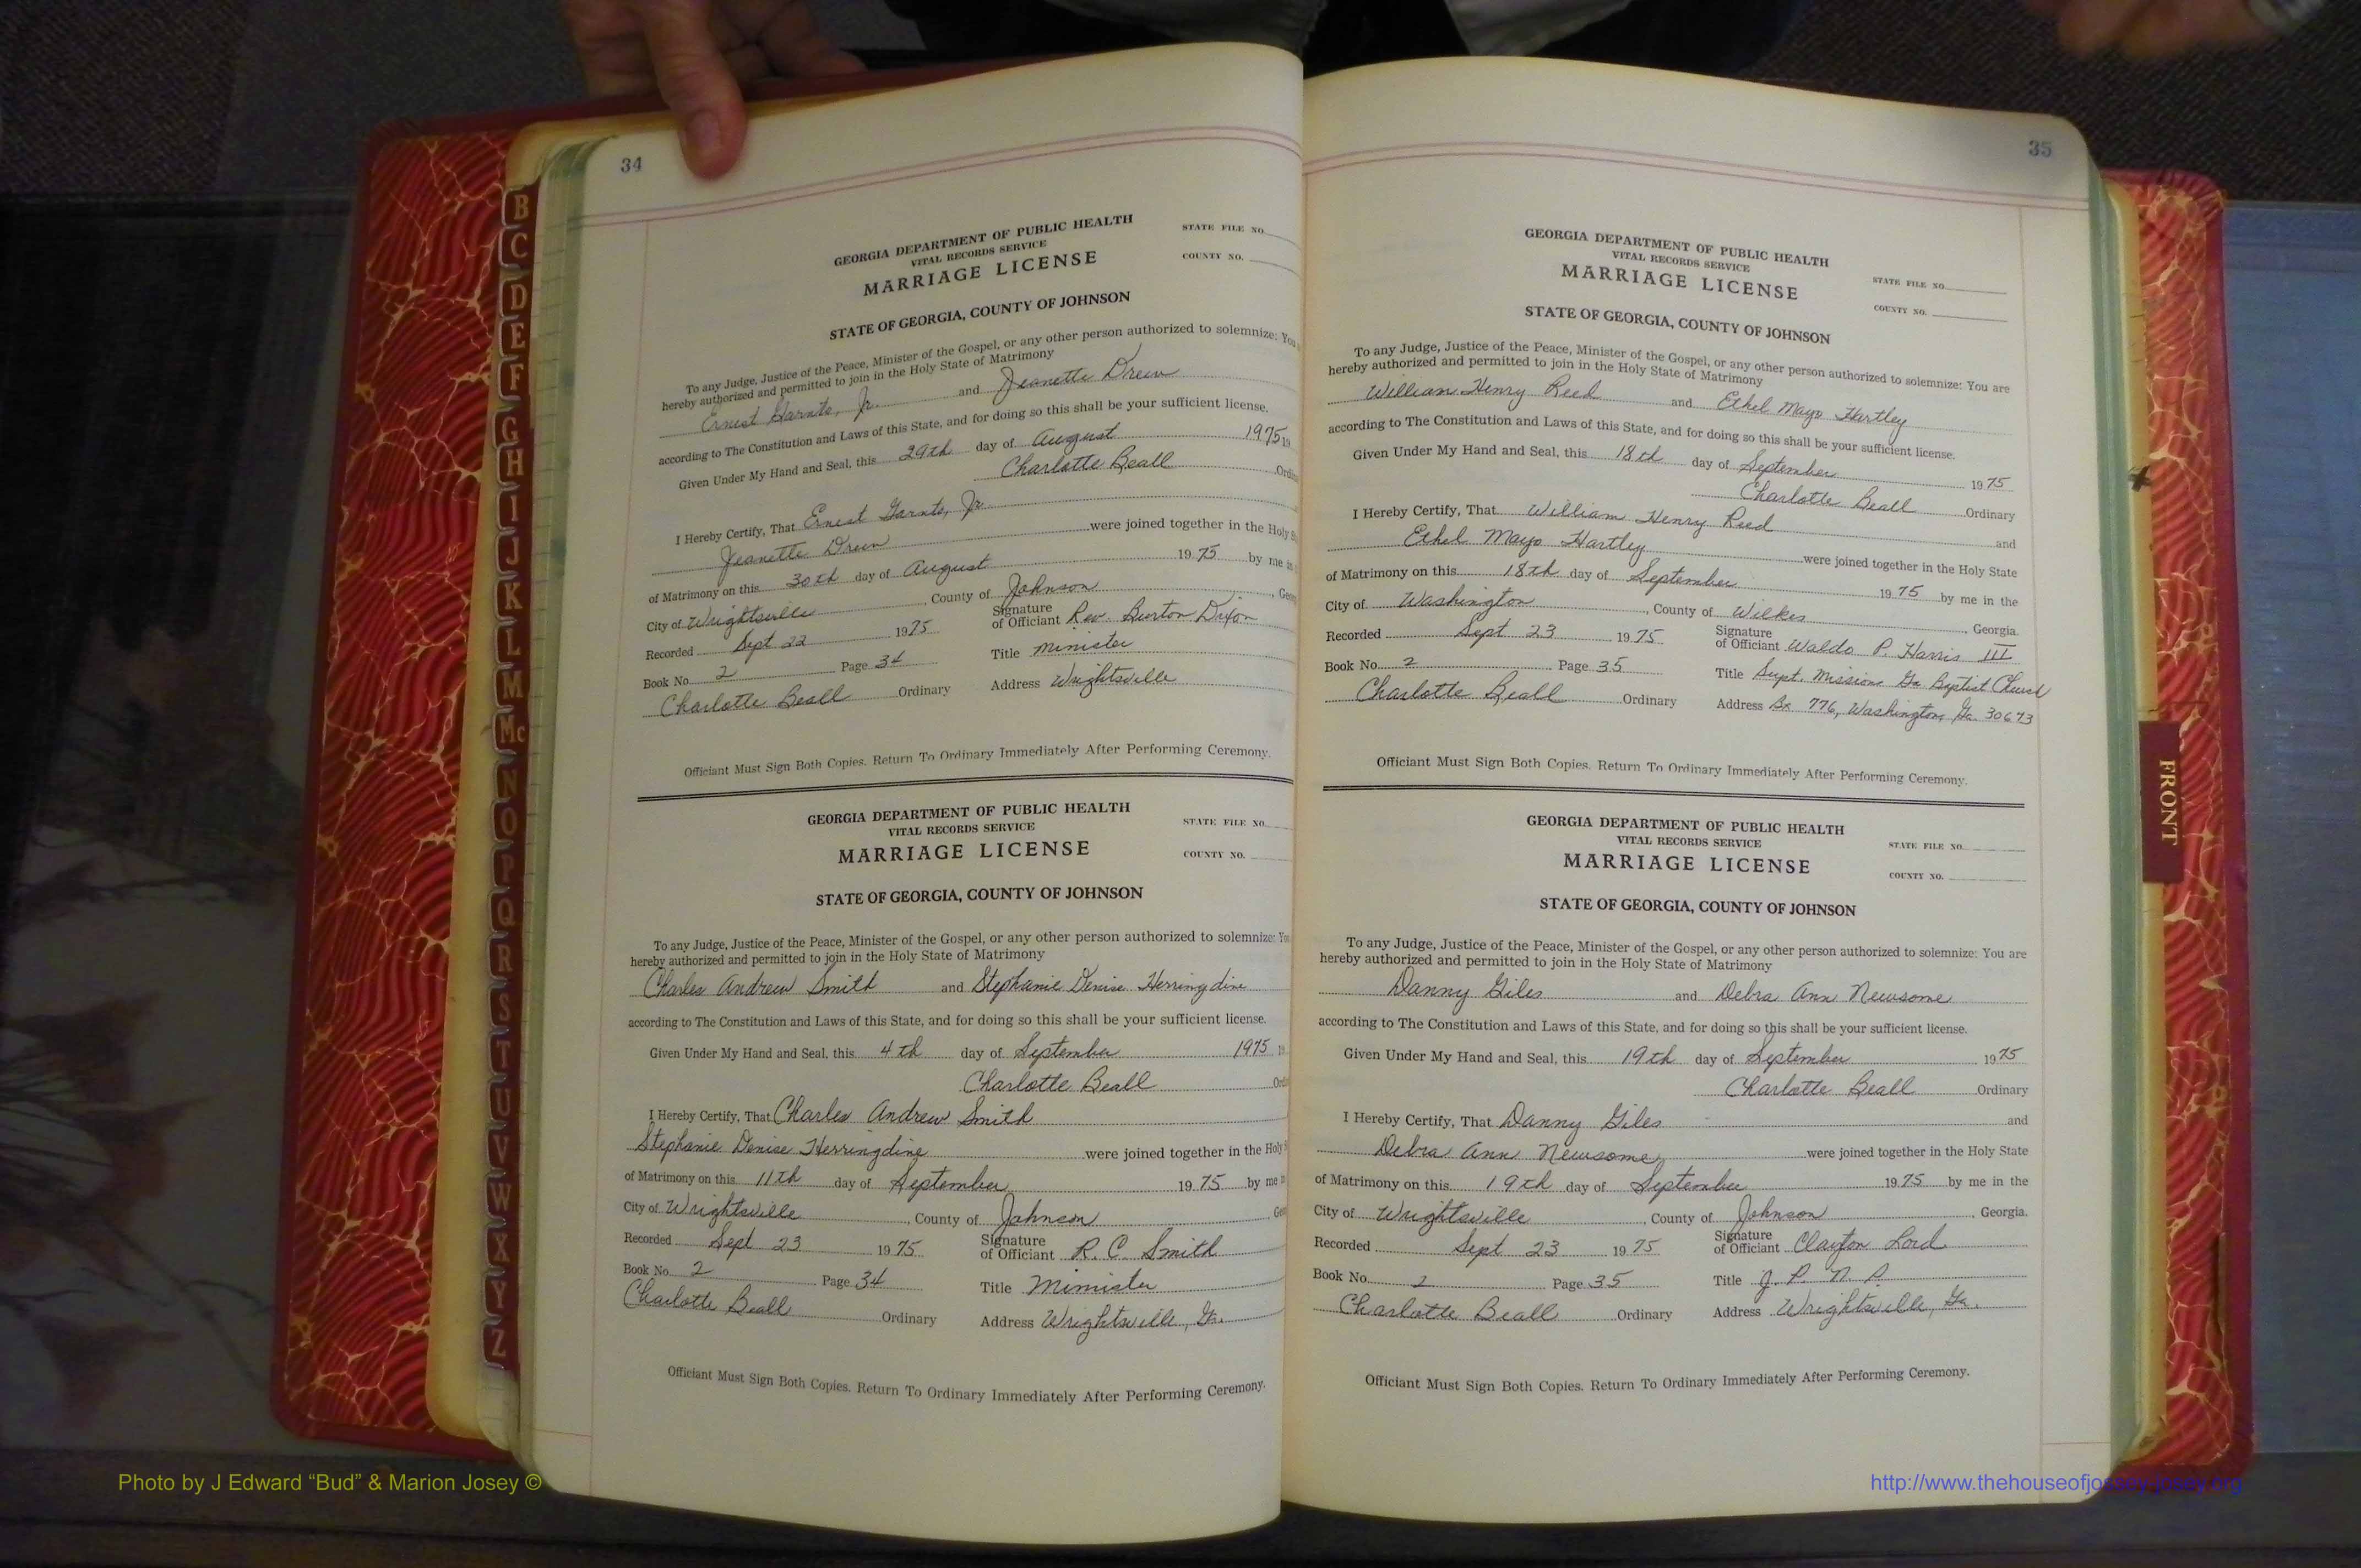 34
GEORGIA DEPARTMENT OF PUBLIC HEALTH
VITAL RECORDS SERVICE
MARRIAGE LICENSE
STATE FILE NO.
COUNTY NO.
STATE OF GEORGIA, COUNTY OF JOHNSON
To any Judge, Justice of the Peace, Minister of the Gospel, or any other person authorized to solemnize: You
hereby authorized and permitted to join in the Holy State of Matrimony
Ernest Garnto, Jr. and Jeanette Drew
according to The Constitution and Laws of this State, and for doing so this shall be your sufficient license.
Given Under My Hand and Seal, this 29th day of August 1975 19
Charlotte Beall Ordi
I Hereby Certify, That Ernest Garnto, Jr.
Jeanette Drew were joined together in the Holy S
of Matrimony on this 30th day of August 1975 by me i
City of Wrightsville, County of Johnson, Geo
Recorded Sept 22 1975 Signature of Officiant Rev. Burton Dixon
Book No 2 Page 34 Title minister
Charlotte Beall Ordinary Address Wrightsville
Officiant Must Sign Both Copies. Return To Ordinary Immediately After Performing Ceremony.
GEORGIA DEPARTMENT OF PUBLIC HEALTH
VITAL RECORDS SERVICE
MARRIAGE LICENSE
STATE FILE NO.
COUNTY NO.
STATE OF GEORGIA, COUNTY OF JOHNSON
To any Judge, Justice of the Peace, Minister of the Gospel, or any other person authorized to solemnize: Yo
hereby authorized and permitted to join in the Holy State of Matrimony
Charles Andrew Smith and Stephanie Denise Herringdine
according to The Constitution and Laws of this State, and for doing so this shall be your sufficient license.
Given Under My Hand and Seal, this 4th day of September 1975 19
Charlotte Beall Ord
I Hereby Certify, That Charles Andrew Smith
Stephanie Denise Herringdine were joined together in the Holy S
of Matrimony on this 11th day of September 1975 by me i
City of Wrightsville, County of Johnson, Geo
Recorded Sept 23 1975 Signature of Officiant R. C. Smith
Book No. 2 Page 34 Title Minister
Charlotte Beall Ordinary Address Wrightsville, Ga.
Officiant Must Sign Both Copies. Return To Ordinary Immediately After Performing Ceremony.
35
GEORGIA DEPARTMENT OF PUBLIC HEALTH
VITAL RECORDS SERVICE
MARRIAGE LICENSE
STATE FILE NO.
COUNTY NO.
STATE OF GEORGIA, COUNTY OF JOHNSON
To any Judge, Justice of the Peace, Minister of the Gospel, or any other person authorized to solemnize: You are
hereby authorized and permitted to join in the Holy State of Matrimony
William Henry Reed and Ethel Mayo Hartley
according to The Constitution and Laws of this State, and for doing so this shall be your sufficient license.
Given Under My Hand and Seal, this 18th day of September 1975
Charlotte Beall Ordinary
I Hereby Certify, That William Henry Reed and
Ethel Mayo Hartley were joined together in the Holy State
of Matrimony on this 18th day of September 1975 by me in the
City of Washington, County of Wilkes, Georgia.
Recorded Sept 23 1975 Signature of Officiant Waldo P. Harris III
Book No. 2 Page 35 Title Supt. Missions Ga Baptist Church
Charlotte Beall Ordinary Address Bx 776, Washington, Ga. 30673
Officiant Must Sign Both Copies. Return To Ordinary Immediately After Performing Ceremony.
GEORGIA DEPARTMENT OF PUBLIC HEALTH
VITAL RECORDS SERVICE
MARRIAGE LICENSE
STATE FILE NO.
COUNTY NO.
STATE OF GEORGIA, COUNTY OF JOHNSON
To any Judge, Justice of the Peace, Minister of the Gospel, or any other person authorized to solemnize: You are
hereby authorized and permitted to join in the Holy State of Matrimony
Danny Giles and Debra Ann Newsome
according to The Constitution and Laws of this State, and for doing so this shall be your sufficient license.
Given Under My Hand and Seal, this 19th day of September 1975
Charlotte Beall Ordinary
I Hereby Certify, That Danny Giles and
Debra Ann Newsome were joined together in the Holy State
of Matrimony on this 19th day of September 1975 by me in the
City of Wrightsville, County of Johnson, Georgia.
Recorded Sept 23 1975 Signature of Officiant Clayton Lord
Book No. 2 Page 35 Title J. P. N. P.
Charlotte Beall Ordinary Address Wrightsville, Ga.
Officiant Must Sign Both Copies. Return To Ordinary Immediately After Performing Ceremony.
B
C
D
E
F
G
H
I
J
K
L
M
Mc
N
O
P
Q
R
S
T
U
V
W
X
Y
Z
FRONT
Photo by J Edward “Bud” & Marion Josey ©
http://www.thehouseofjossey-josey.org